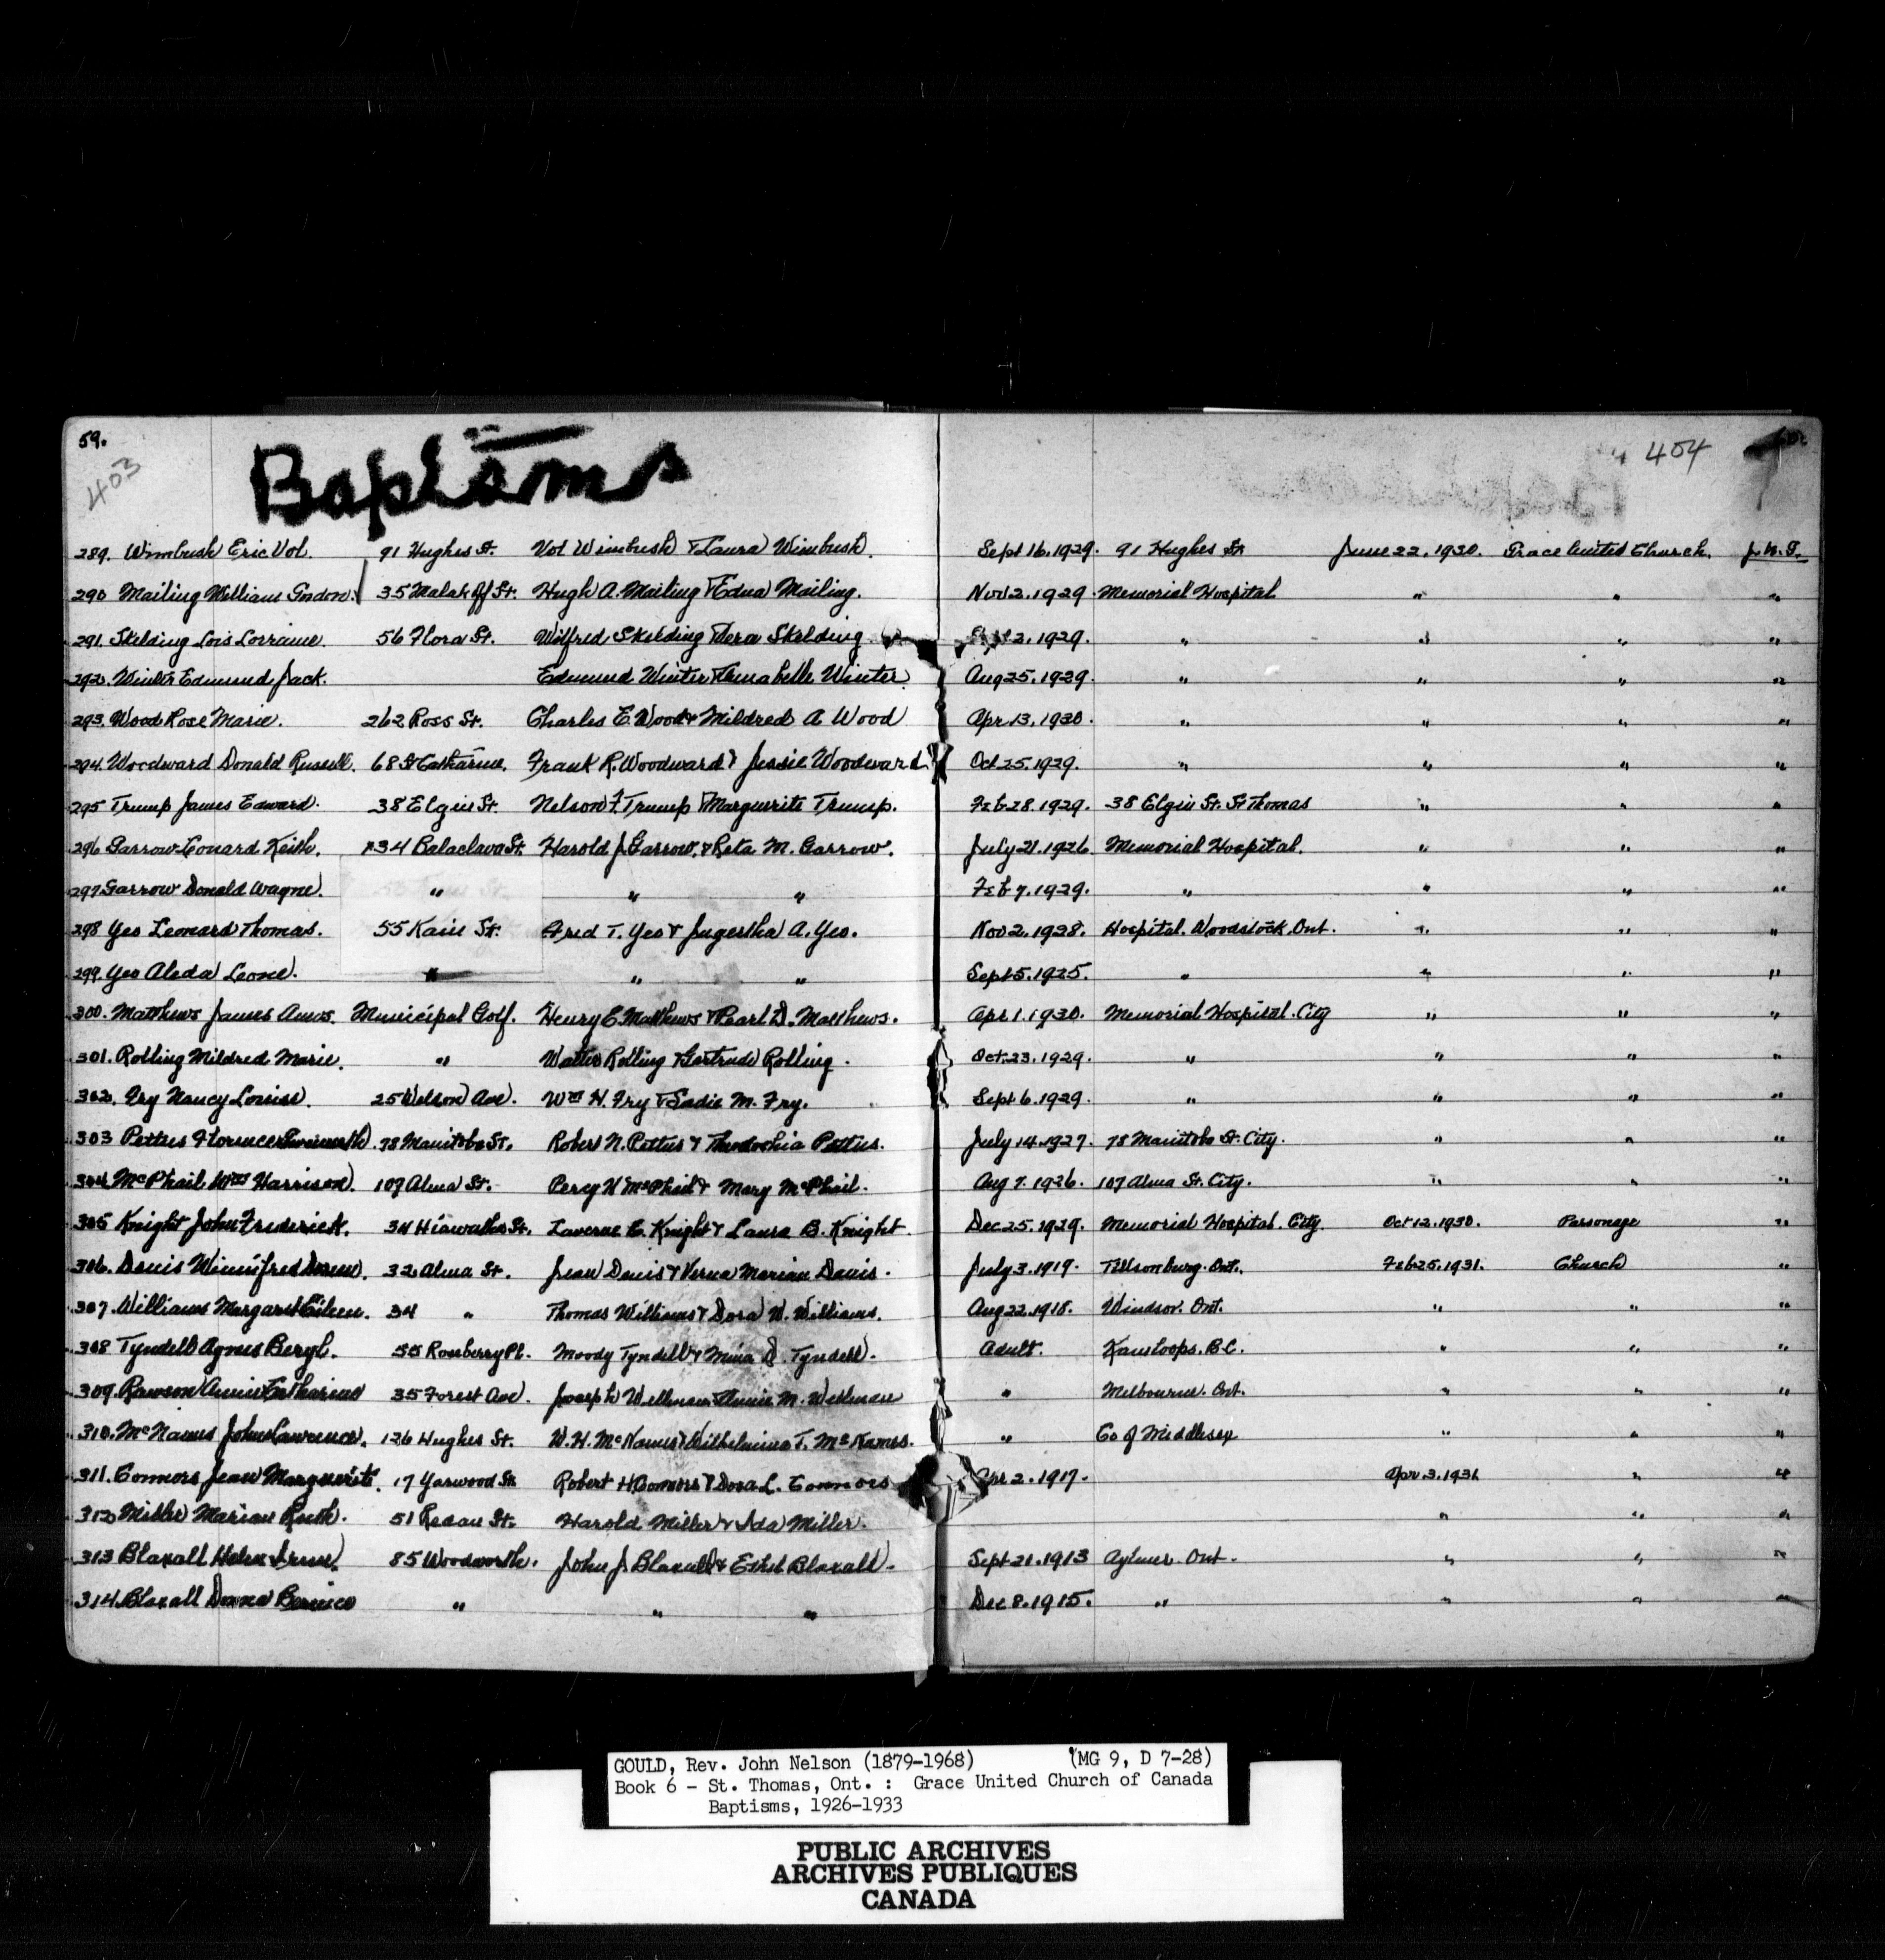 59.
403
Baptisms
404
289. Wimbush Eric Vol. 91 Hughes St. Vol Wimbush & Laura Wimbush. Sept 16.1929. 91 Hughes St June 22.1930. Grace United Church. J.N.G.
290 Mailing William Gordon. 35 Malakoff St. Hugh A. Mailing & Edna Mailing. Nov 2.1929. Memorial Hospital " " "
291. Skelding Lois Lorraine. 56 Flora St. Wilfred Skelding & Vera Skelding 2.1929. " " " "
292. Winter Edmund Jack. Edmund Winter & Annabelle Winter. Aug 25.1929. " " " "
293. Wood Rose Marie. 262 Ross St. Charles E. Wood & Mildred A Wood Apr 13.1930. " " " "
294. Woodward Donald Russell. 68 St Catharine. Frank R. Woodward & Jessie Woodward Oct 25.1929. " " " "
295 Trump James Edward. 38 Elgin St. Nelson F. Trump & Marguerite Trump. Feb 28.1929. 38 Elgin St. St Thomas " " "
296 Garrow Leonard Keith. 34 Balaclava St. Harold J. Garrow. & Reta M. Garrow. July 21.1926. Memorial Hospital. " " "
297 Garrow Donald Wayne. " " " Feb 7.1929. " " " "
298 Yeo Leonard Thomas. 55 Kains St. Fred T. Yeo & A. Yeo. Nov 2.1928. Hospital. Woodstock. Ont. " " "
299. Yeo Aleda Leone. " " " Sept 5.1925. " " " "
300. Matthews James Amos. Municipal Golf. Henry E. Matthews & Pearl D. Matthews. Apr 1.1930. Memorial Hospital. City " " "
301. Rolling Mildred Marie. " Walter Rolling & Gertrude Rolling. Oct. 23.1929. " " " "
302. Fry Nancy Louise. 25 Ave. Wm H. Fry & Sadie M. Fry. Sept 6.1929. " " " "
303 Pettus Florence 78 Manitoba St. Robert N. Pettus & Pettus. July 14.1927. 78 Manitoba St. City. " " "
304. McPhail Wm Harrison. 107 Alma St. Percy H McPhail & Mary McPhail. Aug 7.1926. 107 Alma St. City. " " "
305 Knight John Frederick. 34 Hiawatha St. Laverne E. Knight & Laura B. Knight. Dec 25.1929. Memorial Hospital. City Oct 12.1930. Parsonage "
306. Davis Winnifred 32 Alma St. Jean Davis & Verna Marian Davis. July 3.1919. Tillsonburg. Ont. Feb 25.1931. Church "
307. Williams Margaret Eileen. 34 " Thomas Williams & Dora W. Williams. Aug 22.1918. Windsor. Ont. " " "
308 Tyndell Agnes Beryl. Roseberry Pl. Moody Tyndell & Mina D. Tyndell. Adult. Kamloops. B.C. " " "
309. Rawson Annie Catharine 35 Forest Ave. Joseph Wellman & Annie M. Wellman " Melbourne. Ont. " " "
310. McNames John Lawrence. 126 Hughes St. W.H. McNames & Wilhelmina T. McNames. " Co of Middlesex " " "
311. Connors Jean Marguerite. 17 Yarwood St. Robert H. Connors & Dora L. Connors Apr 2.1917. Apr 3.1931. " "
312 Miller Marian Ruth. 51 Redan St. Harold Miller & Ida Miller. " " "
313 Blaxall Helen Irene. 85 Woodworth. John J. Blaxall & Ethel Blaxall. Sept 21.1913 Aylmer Ont. " " "
314. Blaxall Donna Bernice " " " Dec 8.1915. " " " "
GOULD, Rev. John Nelson (1879-1968) (MG 9, D 7-28)
Book 6 - St. Thomas, Ont. : Grace United Church of Canada
Baptisms, 1926-1933
PUBLIC ARCHIVES
ARCHIVES PUBLIQUES
CANADA